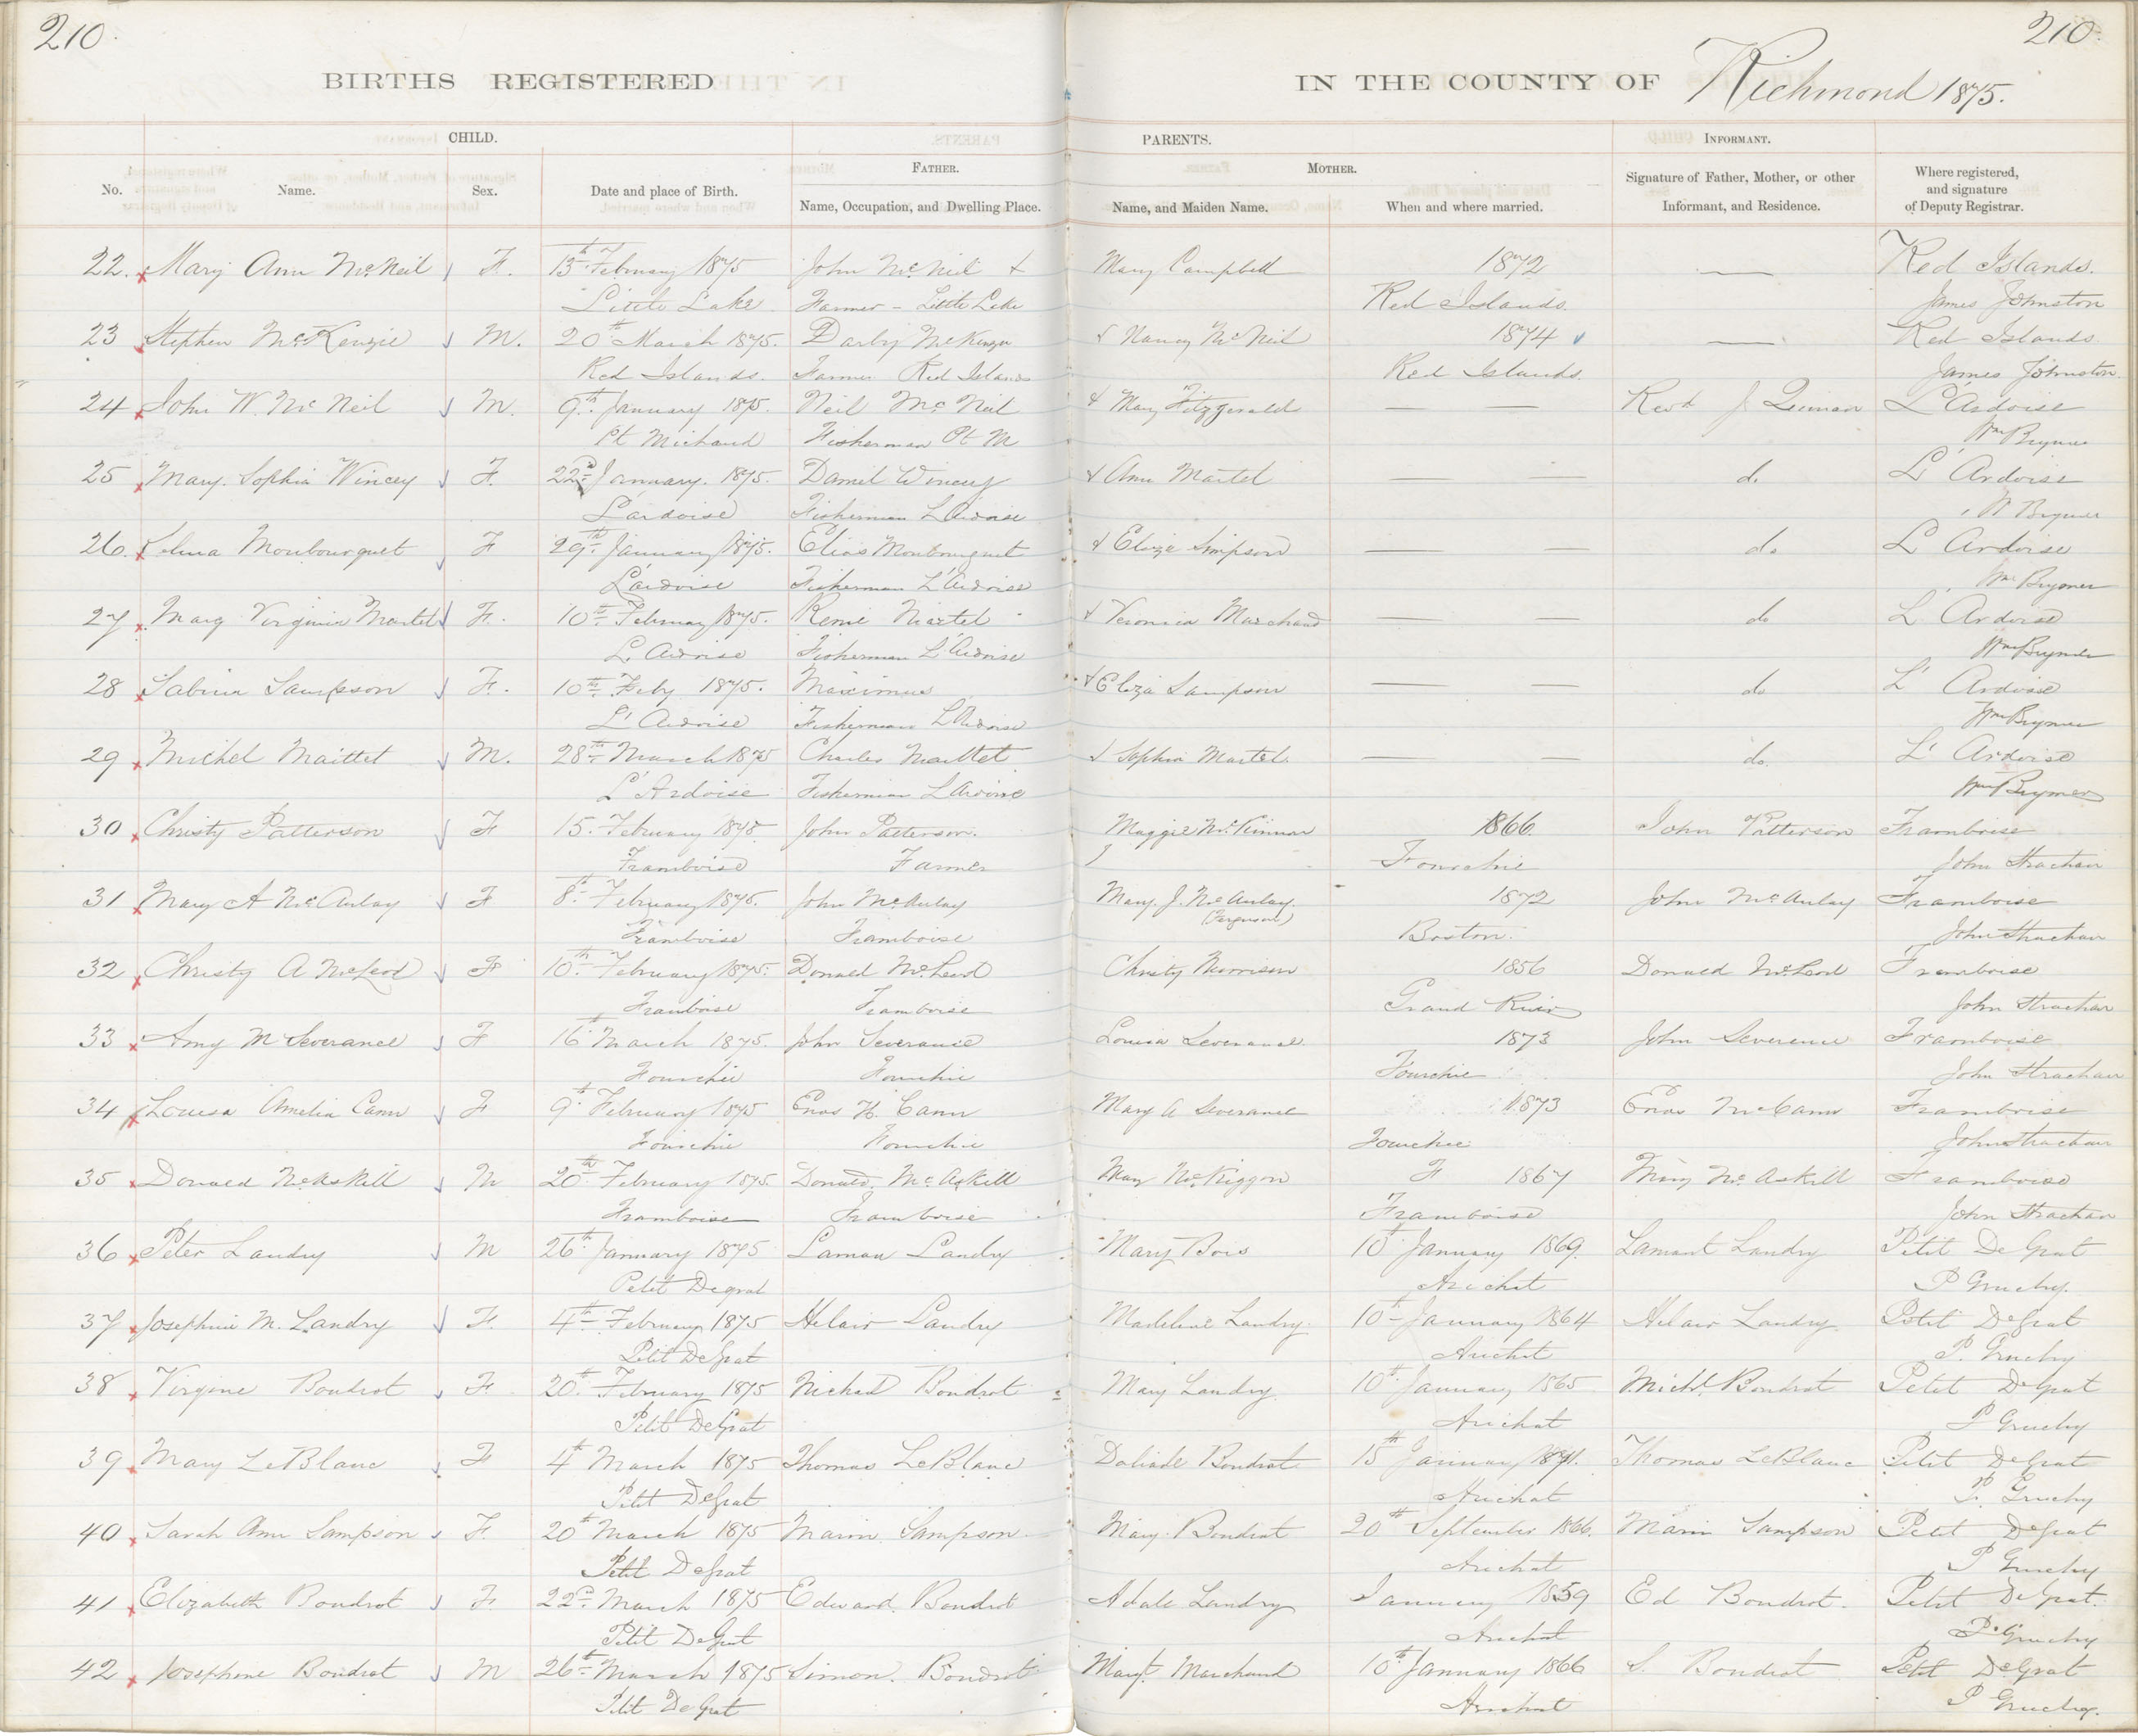 210. 210.
BIRTHS REGISTERED IN THE COUNTY OF Richmond 1875.
CHILD. PARENTS. INFORMANT.
FATHER. MOTHER.
No. Name. Sex. Date and place of Birth. Name, Occupation, and Dwelling Place. Name, and Maiden Name. When and where married. Signature of Father, Mother, or other Informant, and Residence. Where registered, and signature of Deputy Registrar.
22. Mary Ann McNeil F. 13th February 1875 John McNeil + Mary Campbell 1872 Red Islands.
Little Lake Farmer - Little Lake Red Islands. James Johnston
23 Stephen McKenzie M. 20th March 1875. Darby McKenzie & Nancy McNeil 1874 Red Islands
Red Islands. Farmer Red Islands Red Islands. James Johnston.
24 John W. McNeil M. 9th January 1875. Neil McNeil & Mary Fitzgerald — — Revd J Quinan L'Ardoise
Pt Michaud Fisherman Pt M Wm Brymer
25 Mary Sophia Wincey F. 22d January. 1875. Daniel Wincey & Ann Martel — — do L'Ardoise
L'ardoise Fisherman L'Ardoise W Brymer
26. Monbourquet F 29th January 1875. Elias Monbourquet & Eliza Simpson — — do L'Ardoise
L'ardoise Fisherman L'Ardoise Wm Brymer
27 Mary Virginia Martel F. 10th February 1875. René Martel & Veronica Marchand — — do L'Ardoise
L'Ardoise Fisherman L'Ardoise Wm Brymer
28 Sabina Sampson F. 10th Feby 1875. Maximus & Eliza Sampson — — do L'Ardoise
L'Ardoise Fisherman L'Ardoise Wm Brymer
29 Michel Maittet M. 28th March 1875 Charles Maittet & Sophia Martel. — — do. L'Ardoise
L'Ardoise Fisherman L'Ardoise Wm Brymer
30 Christy Patterson F 15. February 1875 John Patterson. Maggie McKinnon 1866. John Patterson Framboise
Framboise Farmer Fourchie John Strachan
31 Mary A McAulay F 8th February 1875. John McAulay Mary J. McAulay. 1872 John McAulay Framboise
(Ferguson)
Framboise Framboise Boston. John Strachan
32 Christy A McLeod F 10th February 1875. Donald McLeod Christy Morrison 1856 Donald McLeod Framboise
Framboise Framboise Grand River John Strachan
33 Amy M Severance F 16th March 1875. John Severance Louisa Severance 1873 John Severence Framboise
Fourchie Fourchie Fourchie John Strachan
34 Louisa Amelia Cann F 9th February 1875 Enos H. Cann Mary A Severance 1873 Enos McCann Framboise
Fourchie Fourchie Fourchie John Strachan
35 Donald McAskill M 20th February 1875. Donald McAskill Mary McKiggon F 1867 Mary McAskill Framboise
Framboise Framboise Framboise John Strachan
36 Peter Landry M 26th January 1875 Laman Landry Mary Bois 10th January 1869. Lamant Landry Petit De Grat
Petit Degrat Arichat P Gruchy.
37 Josephine M. Landry F. 4th February 1875 Helair Landry Madeline Landry. 10th January 1864 Helair Landry Petit DeGrat
Petit DeGrat Arichat P. Gruchy
38 Virgine Boudrot F. 20th February 1875 Michael Boudrot Mary Landry 10th January 1865 Michl. Boudrot Petit DeGrat
Petit DeGrat Arichat P Gruchy
39 Mary LeBlanc F 4th March 1875 Thomas LeBlanc Boudrot 15th January 1871. Thomas LeBlanc Petit DeGrat
Petit DeGrat Arichat P. Gruchy
40 Sarah Ann Sampson F. 20th March 1875 Marin Sampson Mary Boudrot 20th September 1866. Marin Sampson Petit DeGrat
Petit DeGrat Arichat P Gruchy
41 Elizabeth Boudrot F. 22d March 1875 Edward Boudrot Adale Landry January 1859 Ed Boudrot. Petit DeGrat.
Petit DeGrat Arichat P. Gruchy
42 Josephine Boudrot M 26th March 1875 Simon. Boudrot Margt. Marchand 10th January 1866 S. Boudrot Petit DeGrat
Petit DeGrat Arichat P Gruchy.